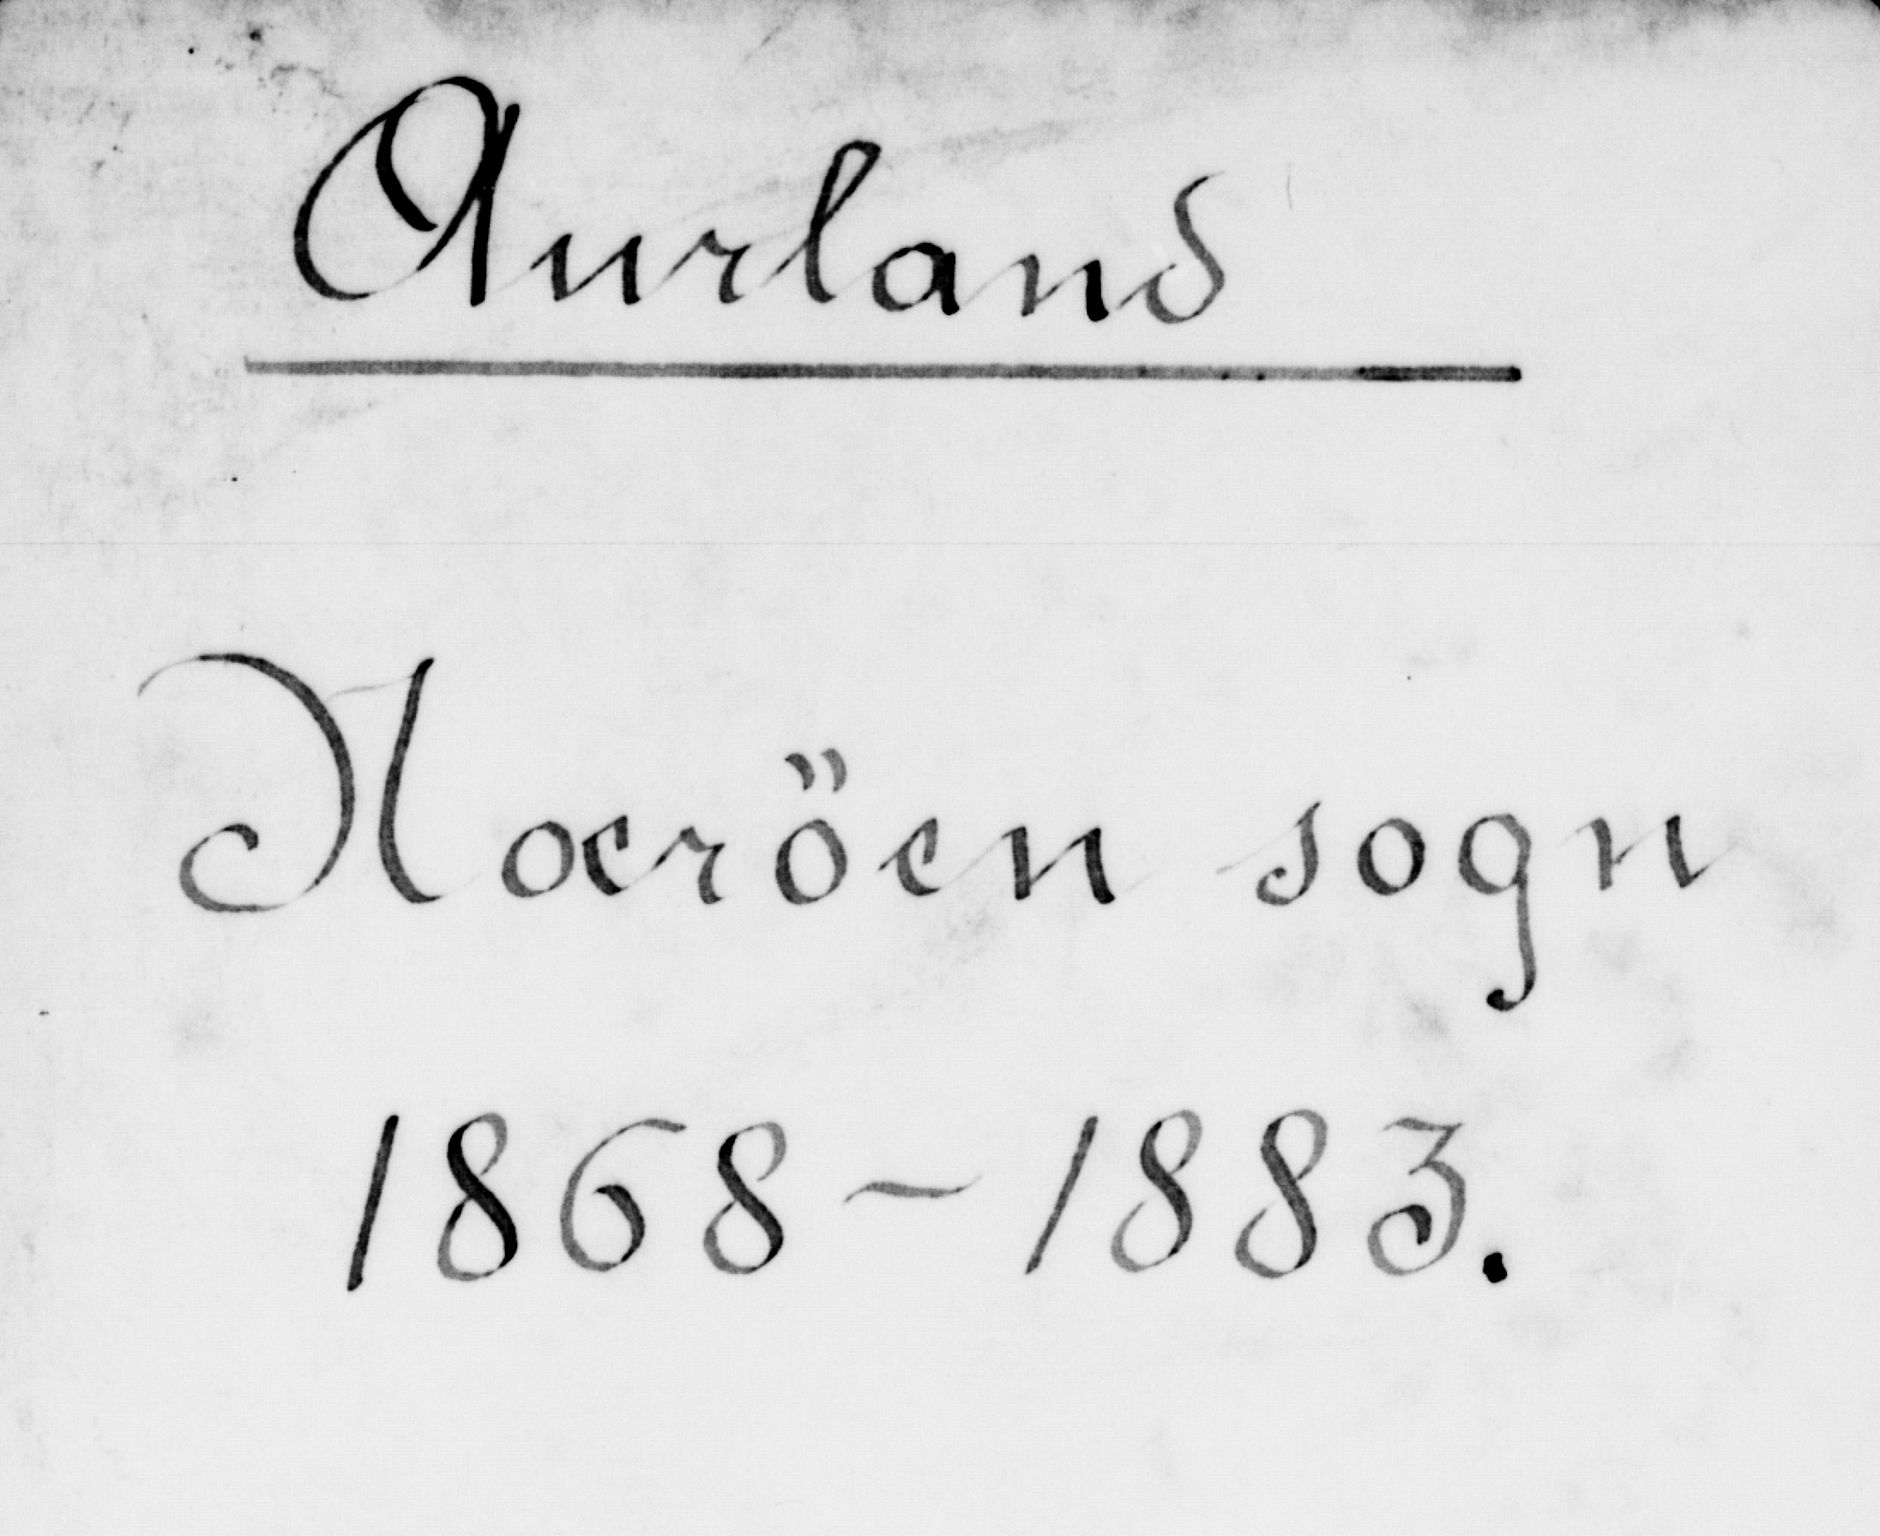 Aurland
Næröen sogn
1868 - 1883.